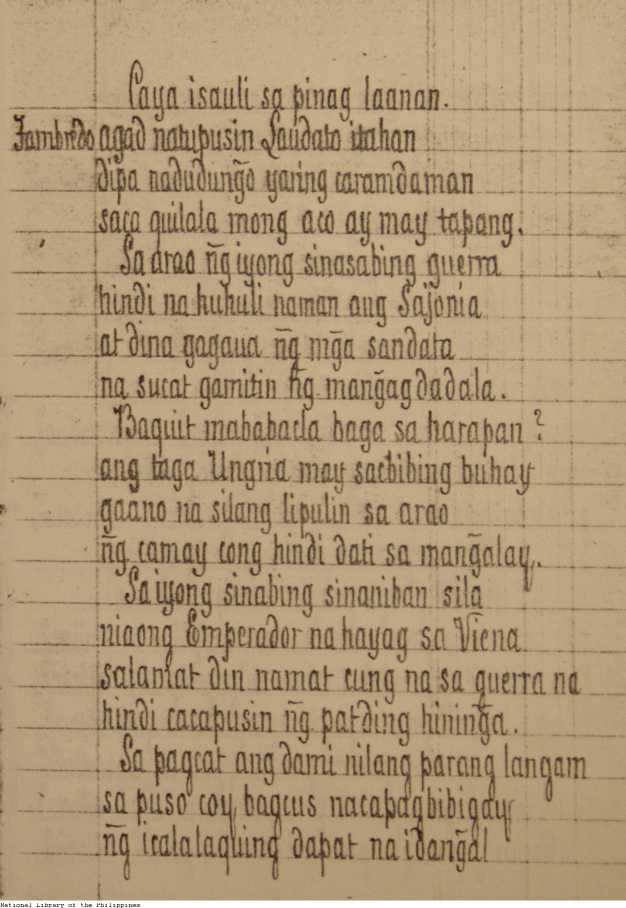 Caya isauli sa pinag laanan.
Jambredo agad natupusin Laudato itahan
dipa nadudungõ yaring caramdaman
saca quilala mong aco ay may tapang.
Sa arao ñg iyong sinasabing guerra
hindi na huhuli naman ang Sajonia
at dina gagaua ñg mg̃a sandata
na sucat gamitin ñg mang̃agdadala.
Baquit mababacla baga sa harapan?
ang taga Ungria may sacbibing buhay
gaano na silang lipulin sa arao
ñg camay cong hindi dati sa mang̃alay.
Sa iyong sinabing sinaniban sila
niaong Emperador na hayag sa Viena
salamat din namat cung na sa guerra na
hindi cacapusin ñg patding hining̃a.
Sa pagcat ang dami nilang parang langam
sa puso coy, bagcus nacapagbibigay
ñg icalalaquing dapat na idang̃al
National Library of the Philippines